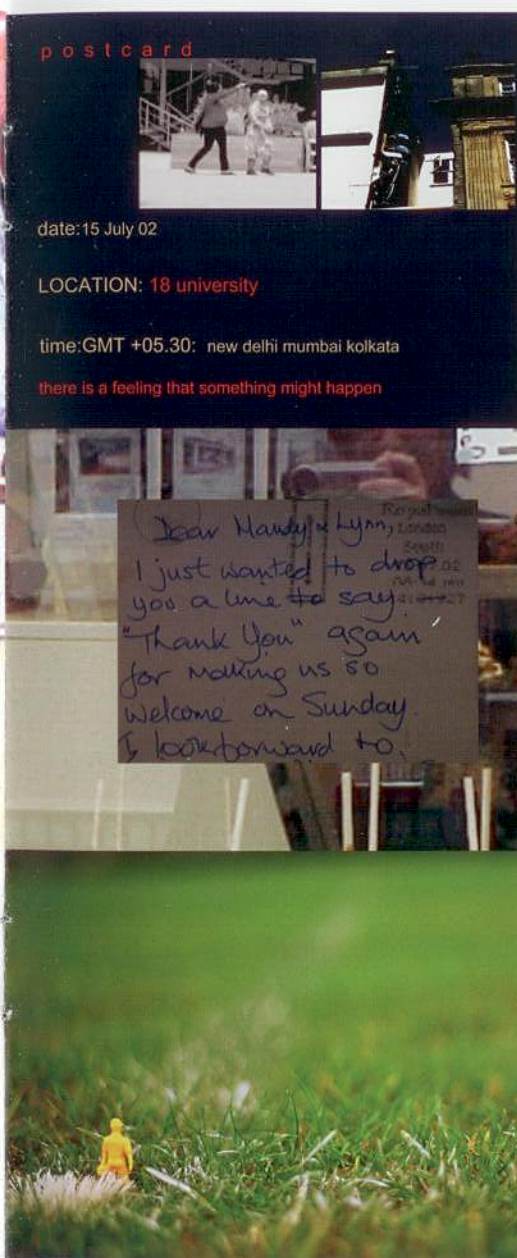 postcard
date:15 July 02
LOCATION: 18 university
time:GMT +05.30: new delhi mumbai kolkata
there is a feeling that something might happen
Dear Mandy & Lynn,
I just wanted to drop
you a line to say
"Thank You" again
for making us so
welcome on Sunday.
I look forward to
London
South